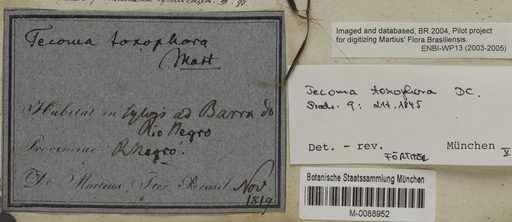 Tecoma toxophora
Mart
Habitat in sylvis ad Barra do
Rio Negro
Provinciae R. Negro.
Dr. Martius, Iter Brasil. Nov
1819
Imaged and databased, BR 2004, Pilot project
for digitizing Martius' Flora Brasiliensis.
ENBI-WP13 (2003-2005)
Tecoma toxophora DC.
Prodr. 9: 1845
Det. - rev. München
Botanische Staatssammlung München
M-0088952